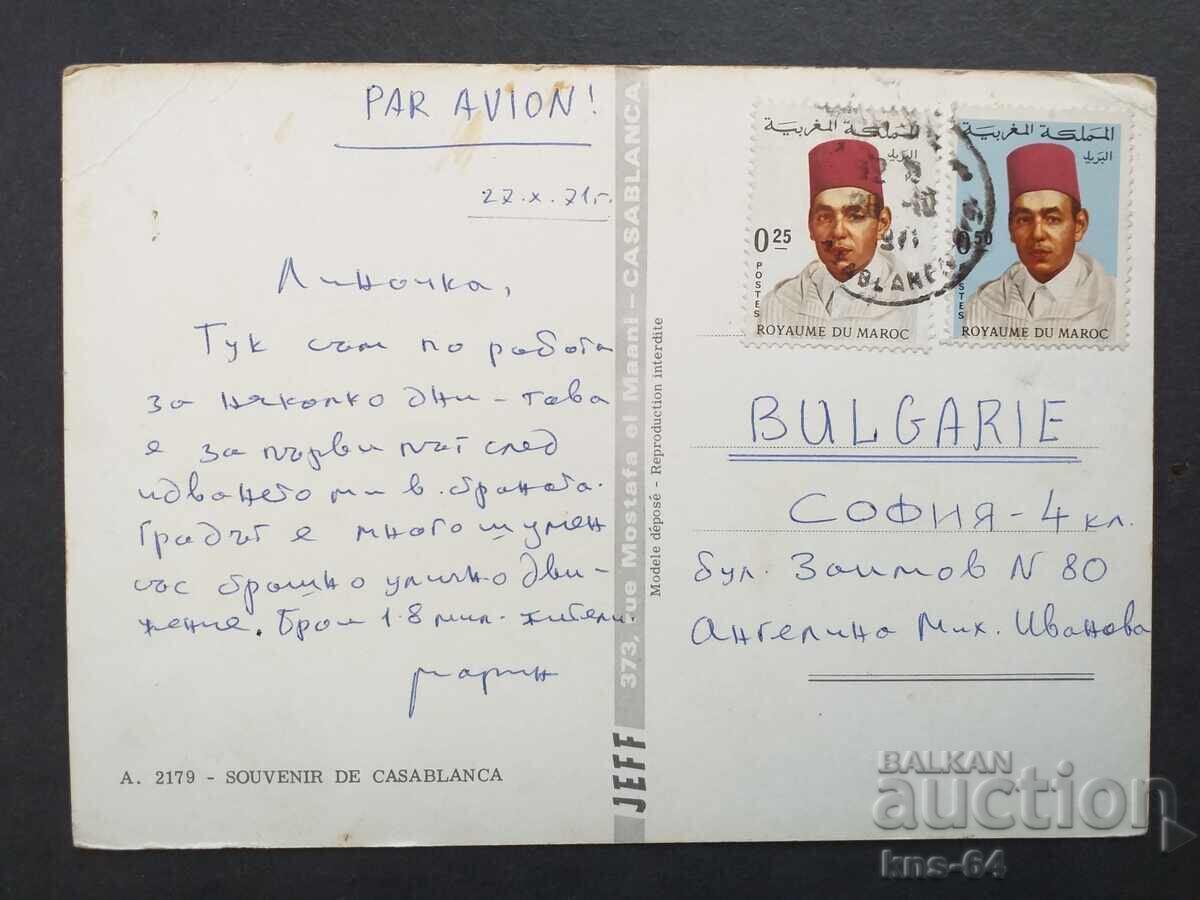 PAR AVION!
27.X.71г.
Линочка,
Тук съм по работа
за няколко дни – това
е за първи път след
идването ми в страната.
Градът е много шумен
със страшно улично дви-
жение. Брои 1.8 мил. жители.
Марин
A. 2179 - SOUVENIR DE CASABLANCA
JEFF 373, rue Mostafa el Maani – CASABLANCA
Modele déposé - Reproduction interdite
المملكة المغربية
البريد
0 25
POSTES
ROYAUME DU MAROC
المملكة المغربية
البريد
0 50
ROYAUME DU MAROC
BULGARIE
СОФИЯ - 4 кл.
бул. Заимов N 80
Ангелина Мих. Иванова
BALKAN
auction
kns-64